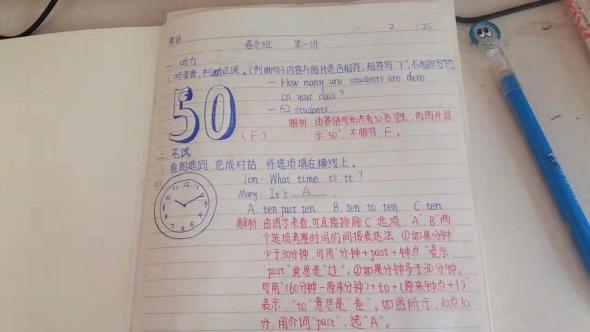 英语
春季班 第一讲 2 25
一. 听力
1. 听录音,判断正误。(判断句子内容与图片是否相符,相符写"T",不相符写"F")
— How many are students are there
in your class?
— 52 students.
50
解析:由答语可知共有52名学生,而图片显
(F) 示"50",不相符,F。
二. 笔试
1. 看图选词,完成对话,将选项填在横线上。
(1) Jim: What time is it?
Mary: It's A
A. ten past ten B. ten to ten C. ten
解析:由图示来看,可直接排除"C"选项,"A"、"B"两
个选项考察时间的间接表达法 ①如果分钟
少于30分钟,可用"分钟+past+钟点"表示,
"past"意思是"过";②如果分钟多于30分钟,
可用"(60分钟-原来分钟)+to+(原来钟点+1)"
表示,"to"意思是"差"。如图所示,10点10
分,用介词"past",选"A"。